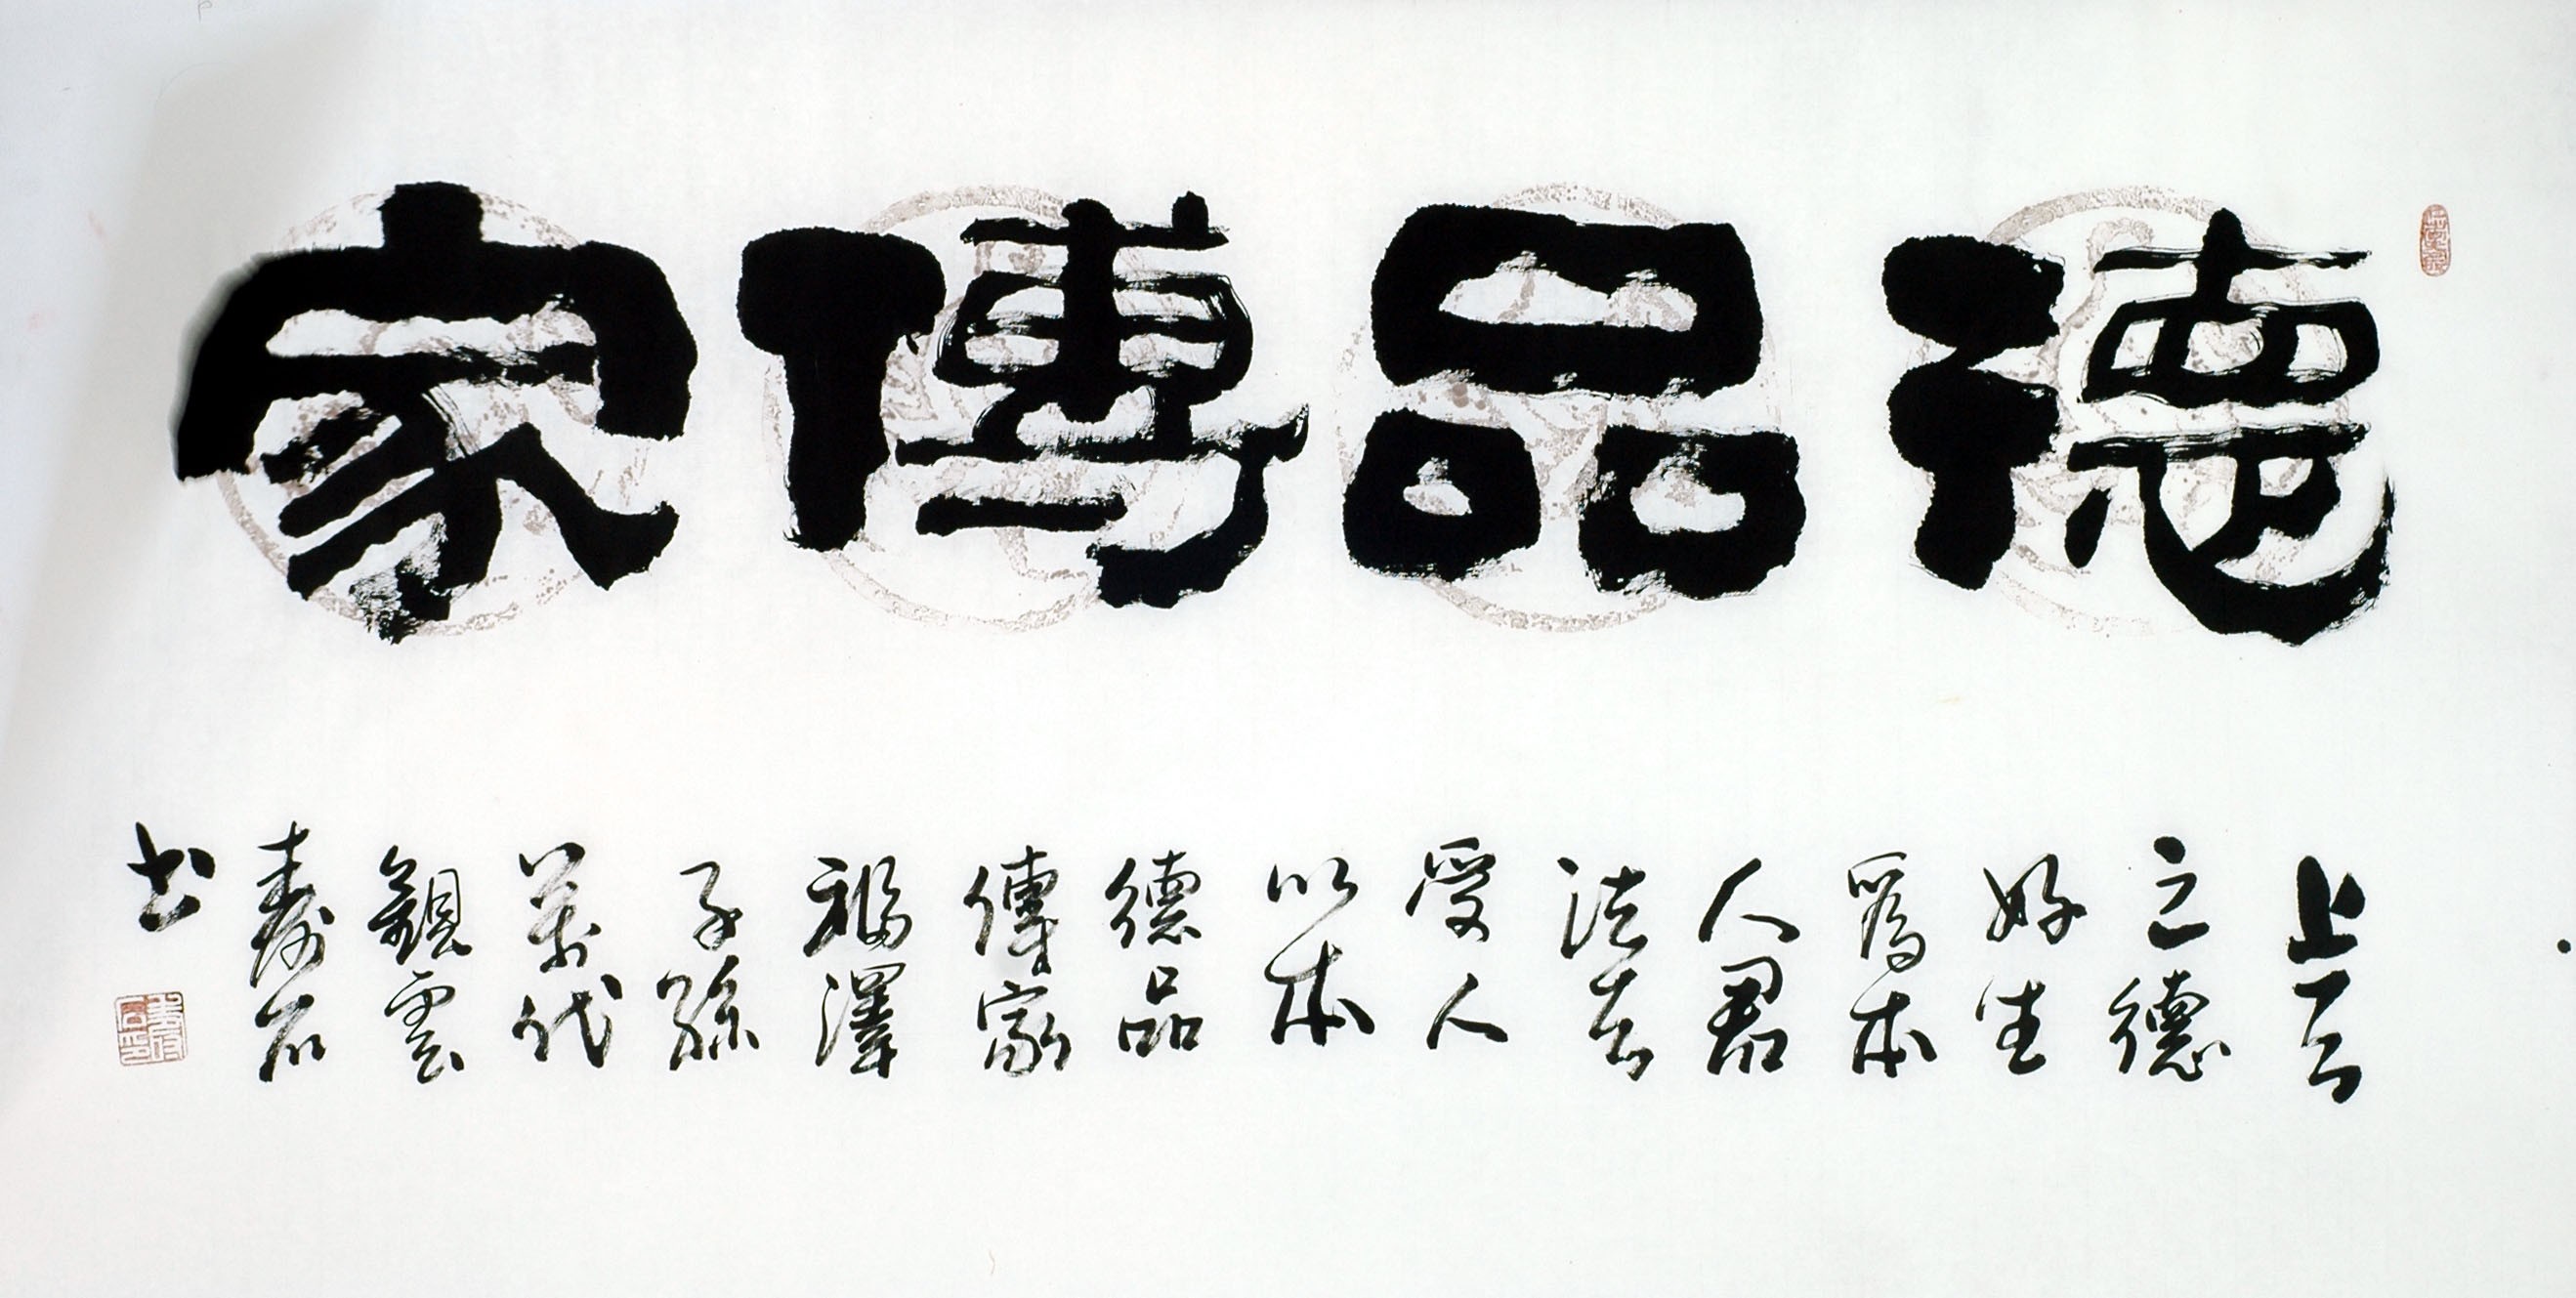 德品傳家
上天
之德
好生
爲本
人君
法古
愛人
以本
德品
傳家
福澤
子孫
萬代
觀雲
壽石
书